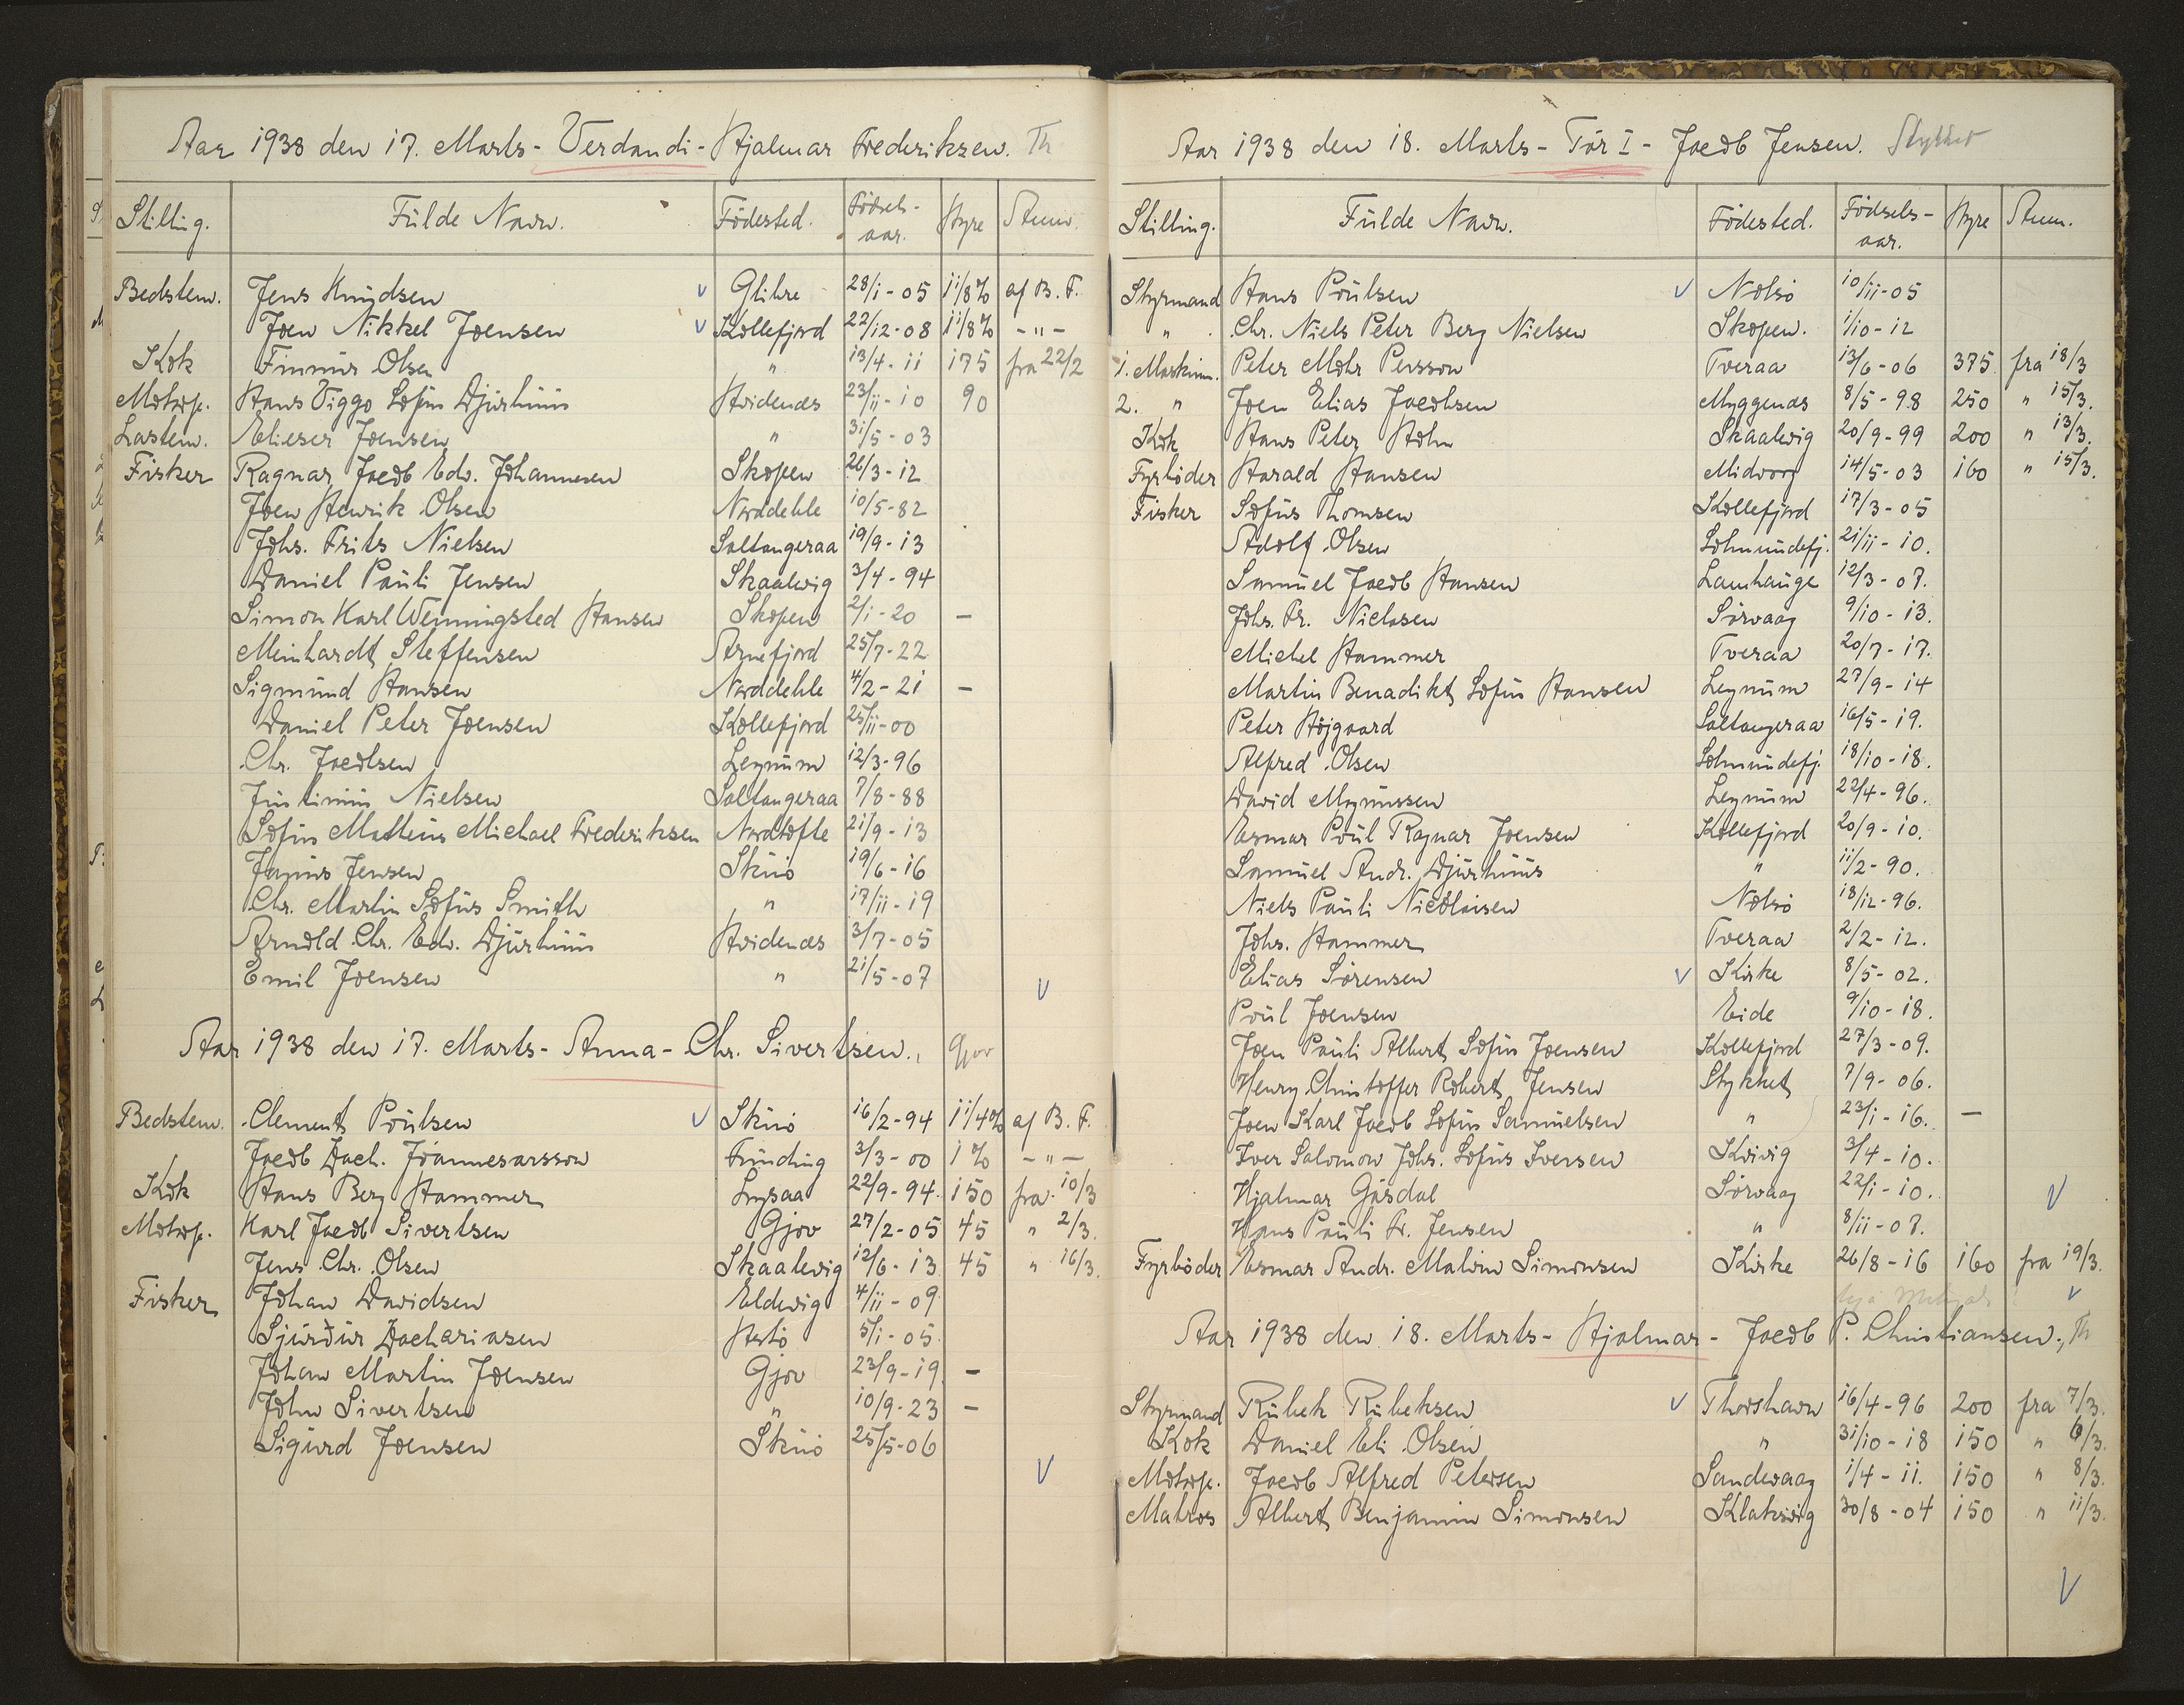 Aar 1938 den 17. Marts - Verdandi - Hjalmar Frederiksen. Th
Stilling. Fulde Navn. Födested. Födsels-aar. Hyre Anm.
Bedstem. Jens Knudsen v Glibre 28/1-05 11/8% af B. F.
Joen Nikkel Joensen v Kollefjord 22/12-08 11/8% -"-
Kok Finnur Olsen " 13/4-11 175 fra 22/2
Motorp. Hans Viggo Sofus Djurhuus Hvidenæs 23/11-10 90
Lastem. Elieser Joensen " 31/5-03
Fisker Ragnar Jacob Edv. Johannesen Skopen 26/3-12
Joen Henrik Olsen Norddeble 10/5-82
Johs. Frits Nielsen Saltangeraa 19/9-13
Daniel Pauli Jensen Skaalevig 3/4-94
Simon Karl Wenningsted Hansen Skopen 2/1-20 -
Meinhardt Steffensen Arnefjord 25/7-22
Sigmund Hansen Norddeble 4/2-21 -
Daniel Peter Joensen Kollefjord 25/11-00
Chr. Jacobsen Leynum 12/3-96
Justinus Nielsen Saltangeraa 7/8-88
Sofus Matteus Michael Frederiksen Nordtofte 21/9-13
Janus Jensen Skuö 19/6-16
Chr. Martin Sofus Smith " 17/11-19
Arnold Chr. Edv. Djurhuus Hvidenæs 3/7-05
Emil Joensen " 21/5-07 v
Aar 1938 den 17. Marts - Anna - Chr. Sivertsen., Gjov
Bedstem. Clement Poulsen v Skuö 16/2-94 11/4% af B. F.
Jacob Zach. Jóannesarsson Funding 3/3-00 1% -"-
Kok Hans Berg Hammer Lopsaa 22/9-94 150 fra 10/3
Motorp. Karl Jacob Sivertsen Gjov 27/2-05 45 " 2/3.
Jens Chr. Olsen Skaalevig 12/6-13 45 " 16/3.
Fisker Johan Davidsen Eldevig 4/11-09
Sjúrður Zachariasen Hestö 5/1-05
Johan Martin Joensen Gjov 23/9-19 -
John Sivertsen " 10/9-23 -
Sigurd Joensen Skuö 25/5-06
v
Aar 1938 den 18. Marts - Tór I - Jacob Jensen. Stykket
Stilling. Fulde Navn. Födested. Födsels-aar. Hyre Anm.
Styrmand Hans Poulsen v Nolsö 10/11-05
" Chr. Niels Peter Berg Nielsen Skopen. 1/10-12
1. Maskinm. Peter Mohr Persson Tveraa 13/6-06 375 fra 18/3
2. " Joen Elias Jacobsen Myggenæs 8/5-98 250 " 15/3.
Kok Hans Peter Holm Skaalevig 20/9-99 200 " 13/3.
Fyrböder Harald Hansen Midvog 14/5-03 160 " 15/3.
Fisker Sofus Thomsen Kollefjord 17/3-05
Adolf Olsen Solmundefj. 21/11-10.
Samuel Jacob Hansen Lamhauge 12/3-07.
Johs. Fr. Niclasen Sörvaag 9/10-13.
Michel Hammer Tveraa 20/7-17.
Martin Benadikt Sofus Hansen Leynum 27/9-14
Peter Höjgaard Saltangeraa 16/5-19.
Alfred Olsen Solmundefj. 18/10-18.
David Magnussen Leynum 22/4-96.
Esmar Poul Ragnar Joensen Kollefjord 20/9-10.
Samuel Andr. Djurhuus " 11/2-90.
Niels Pauli Nicolaisen Nolsö 18/12-96.
Johs. Hammer Tveraa 2/2-12.
Elias Sörensen v Kirke 8/5-02.
Poul Joensen Eide 9/10-18.
Joen Pauli Albert Sofus Joensen Kollefjord 27/3-09.
Henry Christoffer Robert Jensen Stykket 7/9-06.
Joen Karl Jacob Sofus Samuelsen " 23/1-16. -
Iver Salomon Johs. Sofus Iversen Kvivig 3/4-10.
Hjalmar Gásdal Sörvaag 22/1-10. v
Hans Pauli Fr. Jensen " 8/11-07.
Fyrböder Esmar Andr. Malvin Simonsen Kirke 26/8-16 160 fra 19/3.
v
Aar 1938 den 18. Marts - Hjalmar - Jacob P. Christiansen., Th
Styrmand Rubek Rubeksen v Thorshavn 16/4-96 200 fra 7/3.
Kok Daniel Eli Olsen " 31/10-18 150 " 6/3.
Motorp. Jacob Alfred Petersen Sandevaag 1/4-11. 150 " 8/3.
Matros Albert Benjamin Simonsen Klaksvig 30/8-04 150 " 11/3.
v